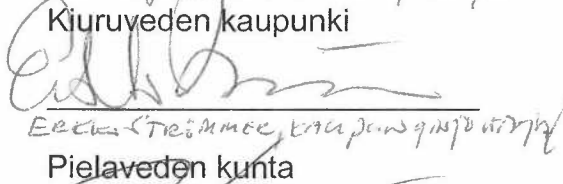 Kiuruveden kaupunki
ERKKI STRÖMMER, kaupunginjohtaja
Pielaveden kunta